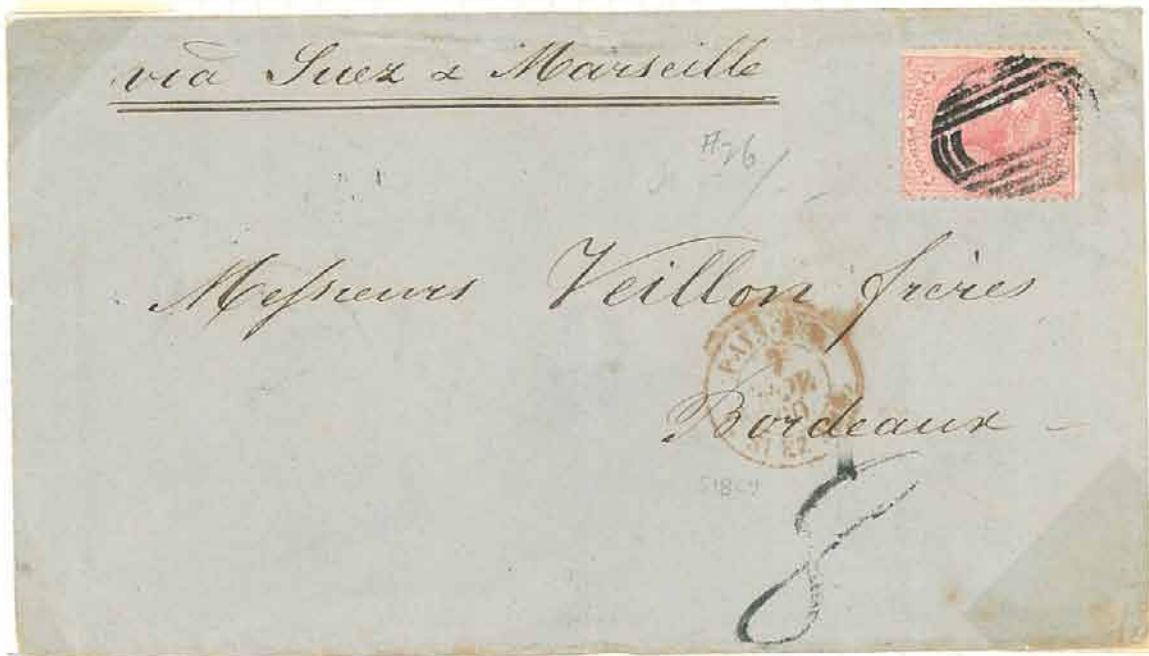 via Suez & Marseille
Messieurs Veillon frères
Bordeaux -
8